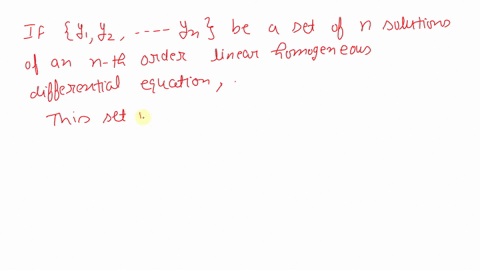 If {y₁, y₂, ---- yₙ} be a set of n solutions
of an n-th order linear homogeneous
differential equation, .
This set